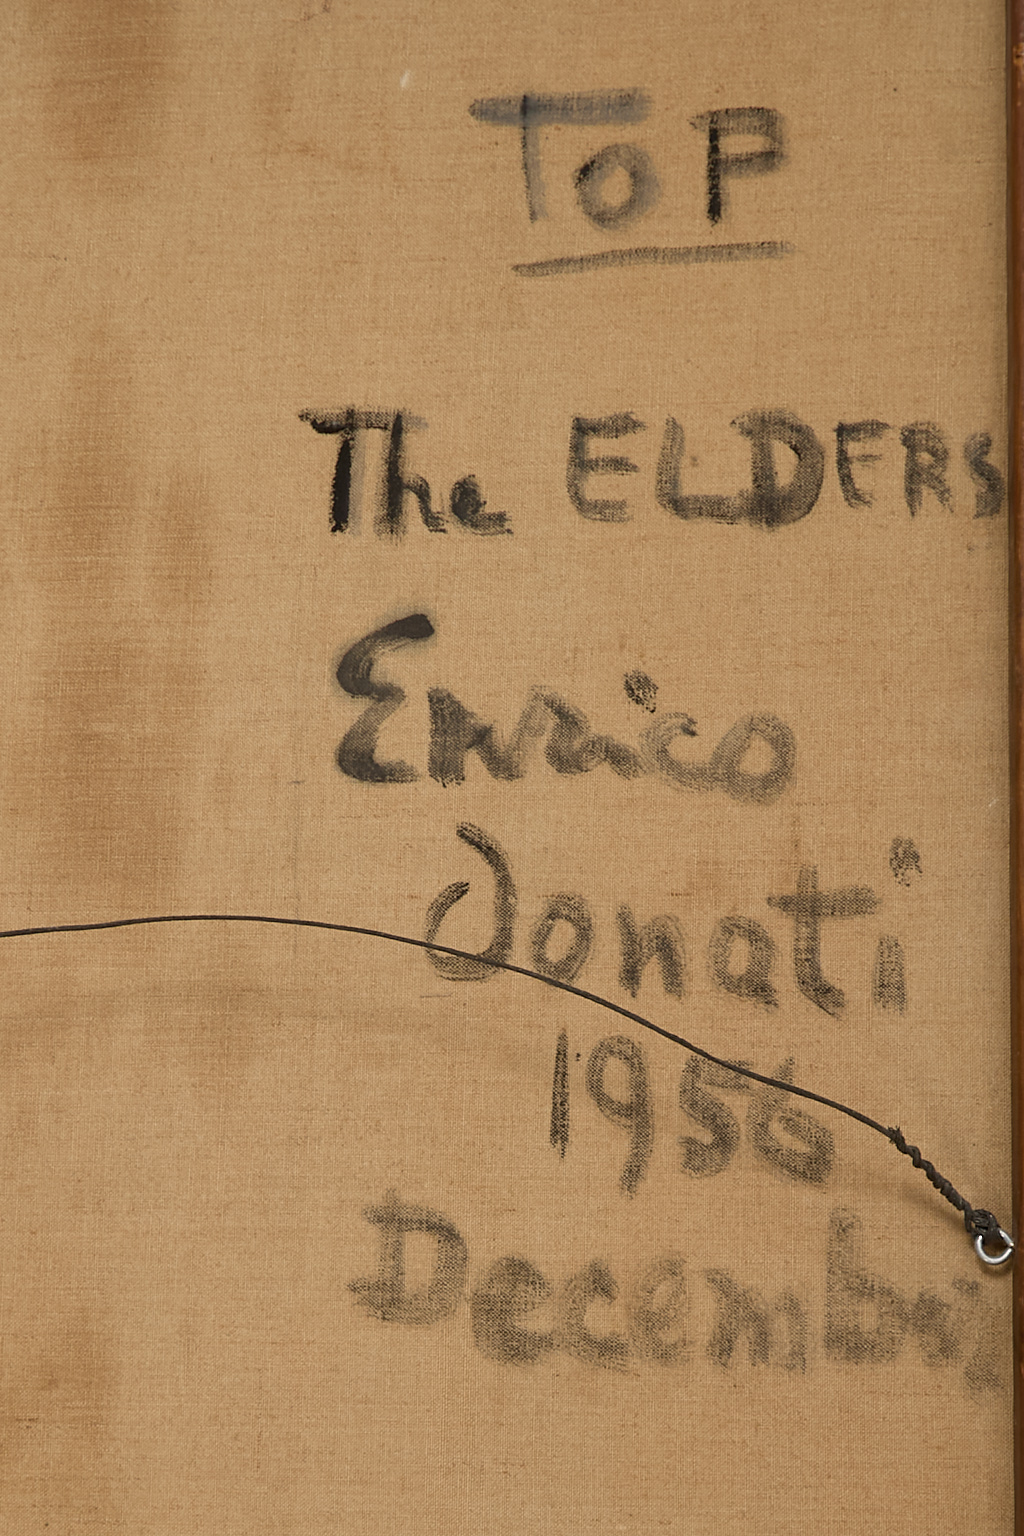 TOP
The ELDERS
Enrico
Donati
1956
December